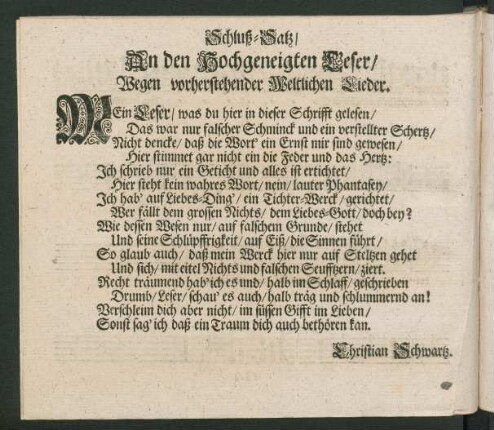 Schluß-Satz/
An den Hochgeneigten Leser/
Wegen vorherstehender Weltlichen Lieder.
MEin Leser/ was du hier in dieser Schrifft gelesen/
Das war nur falscher Schminck und ein verstellter Schertz/
Nicht dencke/ daß die Wort' ein Ernst mir sind gewesen/
Hier stimmet gar nicht ein die Feder und das Hertz:
Ich schrieb nur ein Geticht und alles ist ertichtet/
Hier steht kein wahres Wort/ nein/ lauter Phantasey/
Ich hab' auf Liebes-Ding'/ ein Tichter-Werck/ gerichtet/
Wer fällt dem grossen Nichts/ dem Liebes-Gott/ doch bey?
Wie dessen Wesen nur/ auf falschem Grunde/ stehet
Und seine Schlüpffrigkeit/ auf Eiß/ die Sinnen führt/
So glaub auch/ daß mein Werck hier nur auf Steltzen gehet
Und sich/ mit eitel Nichts und falschen Seufftzern/ ziert.
Recht träumend hab' ich es und/ halb im Schlaff/ geschrieben
Drumb/ Leser/ schau' es auch/ halb träg und schlummernd an!
Verschleim dich aber nicht/ im süssen Gifft im Lieben/
Sonst sag' ich daß ein Traum dich auch bethören kan.
Christian Schwartz.